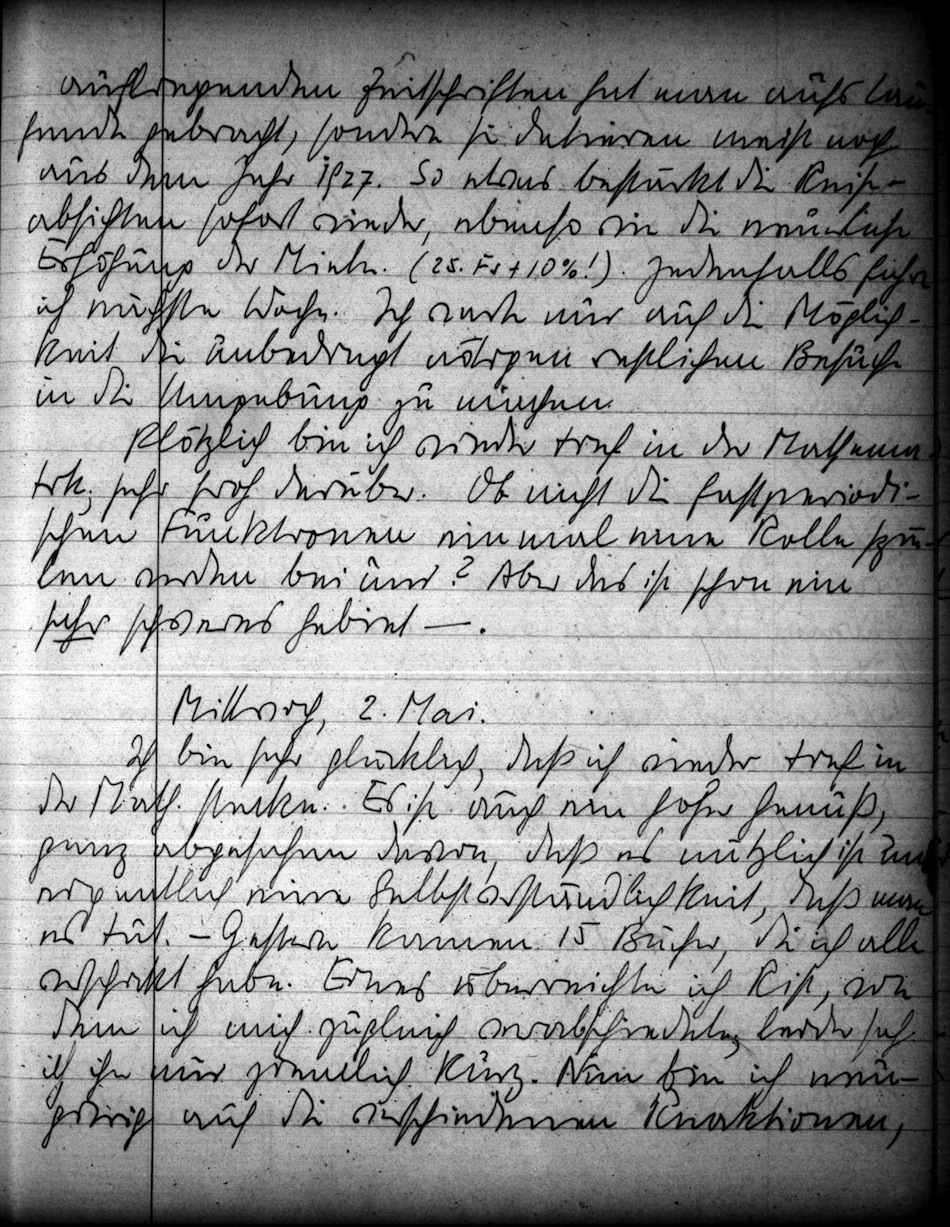 aufliegenden Zeitschriften hat man aufs lau-
fende gebracht, sondern sie datieren meist noch
aus dem Jahr 1927. So etwas bestärkt die Reise-
absichten sofort wieder, ebenso wie die neuerliche
Erhöhung der Miete. (25. Fr + 10%!). Jedenfalls fahre
ich nächste Woche. Ich warte nur auf die Möglich-
keit die unbedingt nötigen restlichen Besuche
in die Umgebung zu machen.
Plötzlich bin ich wieder tief in der Mathema-
tik, sehr froh darüber. Ob nicht die fastperiodi-
schen Funktionen einmal eine Rolle spie-
len werden bei uns? Aber das ist schon ein
sehr schweres Gebiet —.
Mittwoch, 2. Mai.
Ich bin sehr glücklich, daß ich wieder tief in
der Math. stecke. Es ist auch ein hoher Genuß,
ganz abgesehen davon, daß es nützlich ist und
eigentlich eine Selbstverständlichkeit, daß man
es tut. – Gestern kamen 15 Bücher, die ich alle
verschickt habe. Eines überreichte ich Rist, von
dem ich mich zugleich verabschiedete, leider sah
ich ihn nur ziemlich kurz. Nun bin ich neu-
gierig auf die verschiedenen Reaktionen,